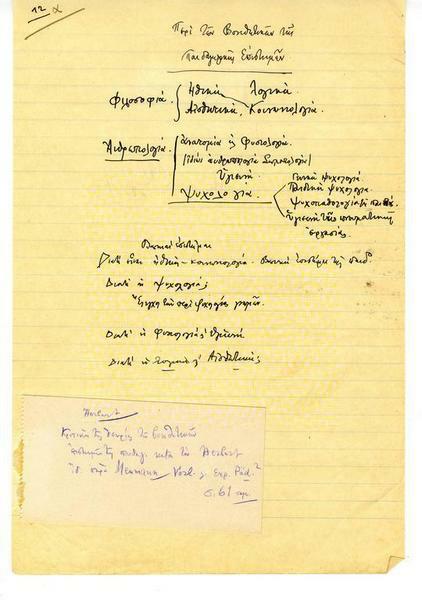 12 α
Περὶ τῶν Βοηθητικῶν τῆς
Παιδαγωγικῆς Ἐπιστημῶν
Φιλοσοφία. Ἠθικὴ Λογικὴ
Αἰσθητικὴ, Κοινωνιολογία.
Ἀνθρωπολογία. ἀνατομία ἢ Φυσιολογία.
(ἰδίως ἀνθρωπολογία Σωματολογία)
Ὑγιεινὴ
Ψυχολογία.
Γενικὴ Ψυχολογία.
Παιδικὴ ψυχολογία.
Ψυχοπαθολογία
Ὑγιεινὴ τῆς πνευματικῆς
ἐργασίας.
Βασικαὶ ἐπιστῆμαι
Διατί εἶναι ἠθικὴ - κοινωνιολογία. βασικὴ ἐπιστήμη τῆς παιδ.
Διατί ἡ ψυχολογία;
Ἔλεγχος τῶν περὶ ψυχολογίας γνωμῶν.
Διατί ἡ Φυσιολογία; Ὑγιεινὴ
Διατί ἡ Λογικὴ; Αἰσθητικὴ;
Herbart
Κριτικὴ τῆς θεωρίας τῶν βοηθητικῶν
ἐπιστημῶν τῆς παιδαγ. κατὰ τὸν Herbart
ἰδ. παρὰ Meumann Vorl. z. Exp. Päd.²
σ. 61